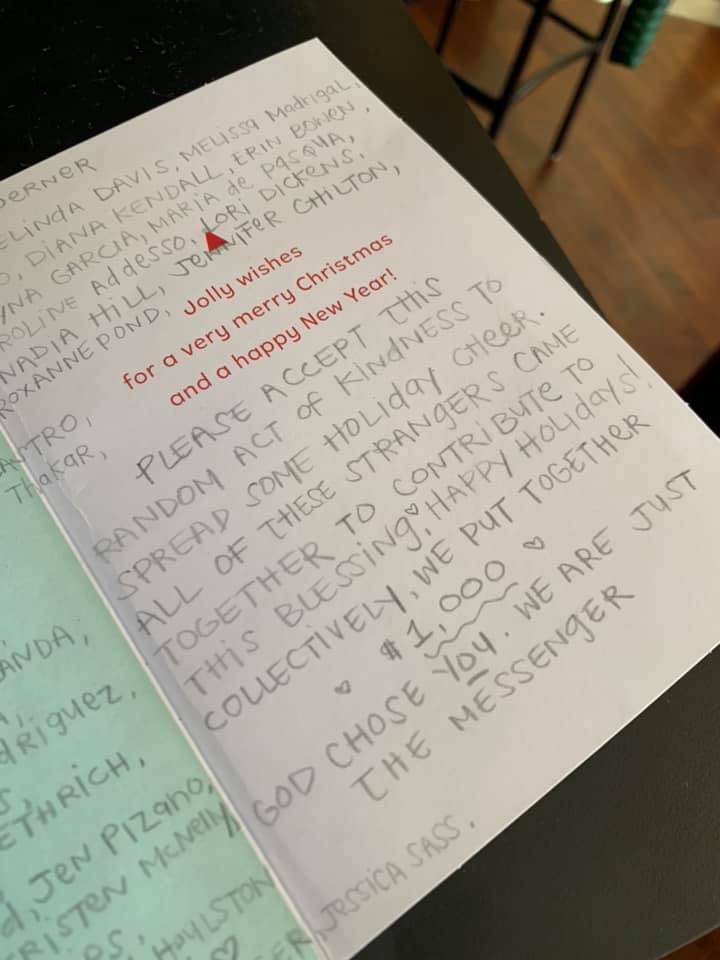 DERNER
ELINDA DAVIS, MELISSA MADRIGAL,
DIANA KENDALL, ERIN BOWEN,
YNA GARCIA, MARIA de PASQUA,
ROLINE Addesso, LORI DICKENS,
NADIA HILL, JENNIFER CHILTON,
ROXANNE POND,
Jolly wishes
for a very merry Christmas
and a happy New Year!
ANTRO,
Thakar,
PLEASE ACCEPT THIS
RANDOM ACT OF KINDNESS TO
SPREAD SOME HOLIDAY CHEER.
ALL OF THESE STRANGERS CAME
TOGETHER TO CONTRIBUTE TO
THIS BLESSING. HAPPY HOLIDAYS!
COLLECTIVELY, WE PUT TOGETHER
♡ $1,000 ♡
GOD CHOSE YOU. WE ARE JUST
THE MESSENGER
ANDA,
driguez,
ETHRICH,
JEN PIZANO,
RISTEN McNelly,
HOYLSTON
JESSICA SASS.